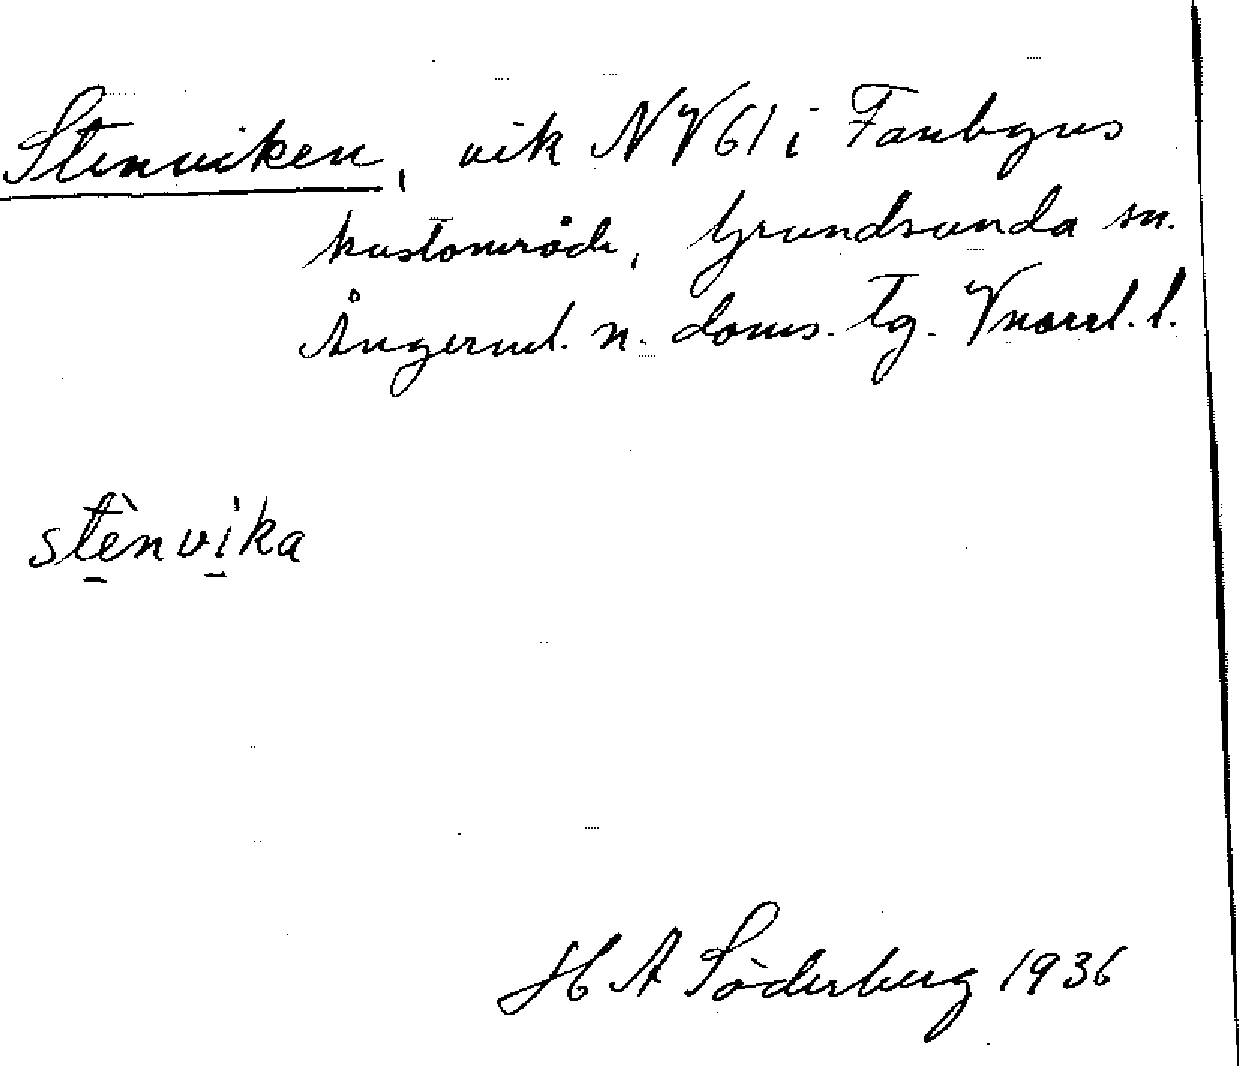 Stenviken, vik NV61 i Fanbyns
kustområde, Grundsunda sn.
Ångerml. n. doms. tg. Vnorrl. l.
stènvíka
H A Söderberg 1936